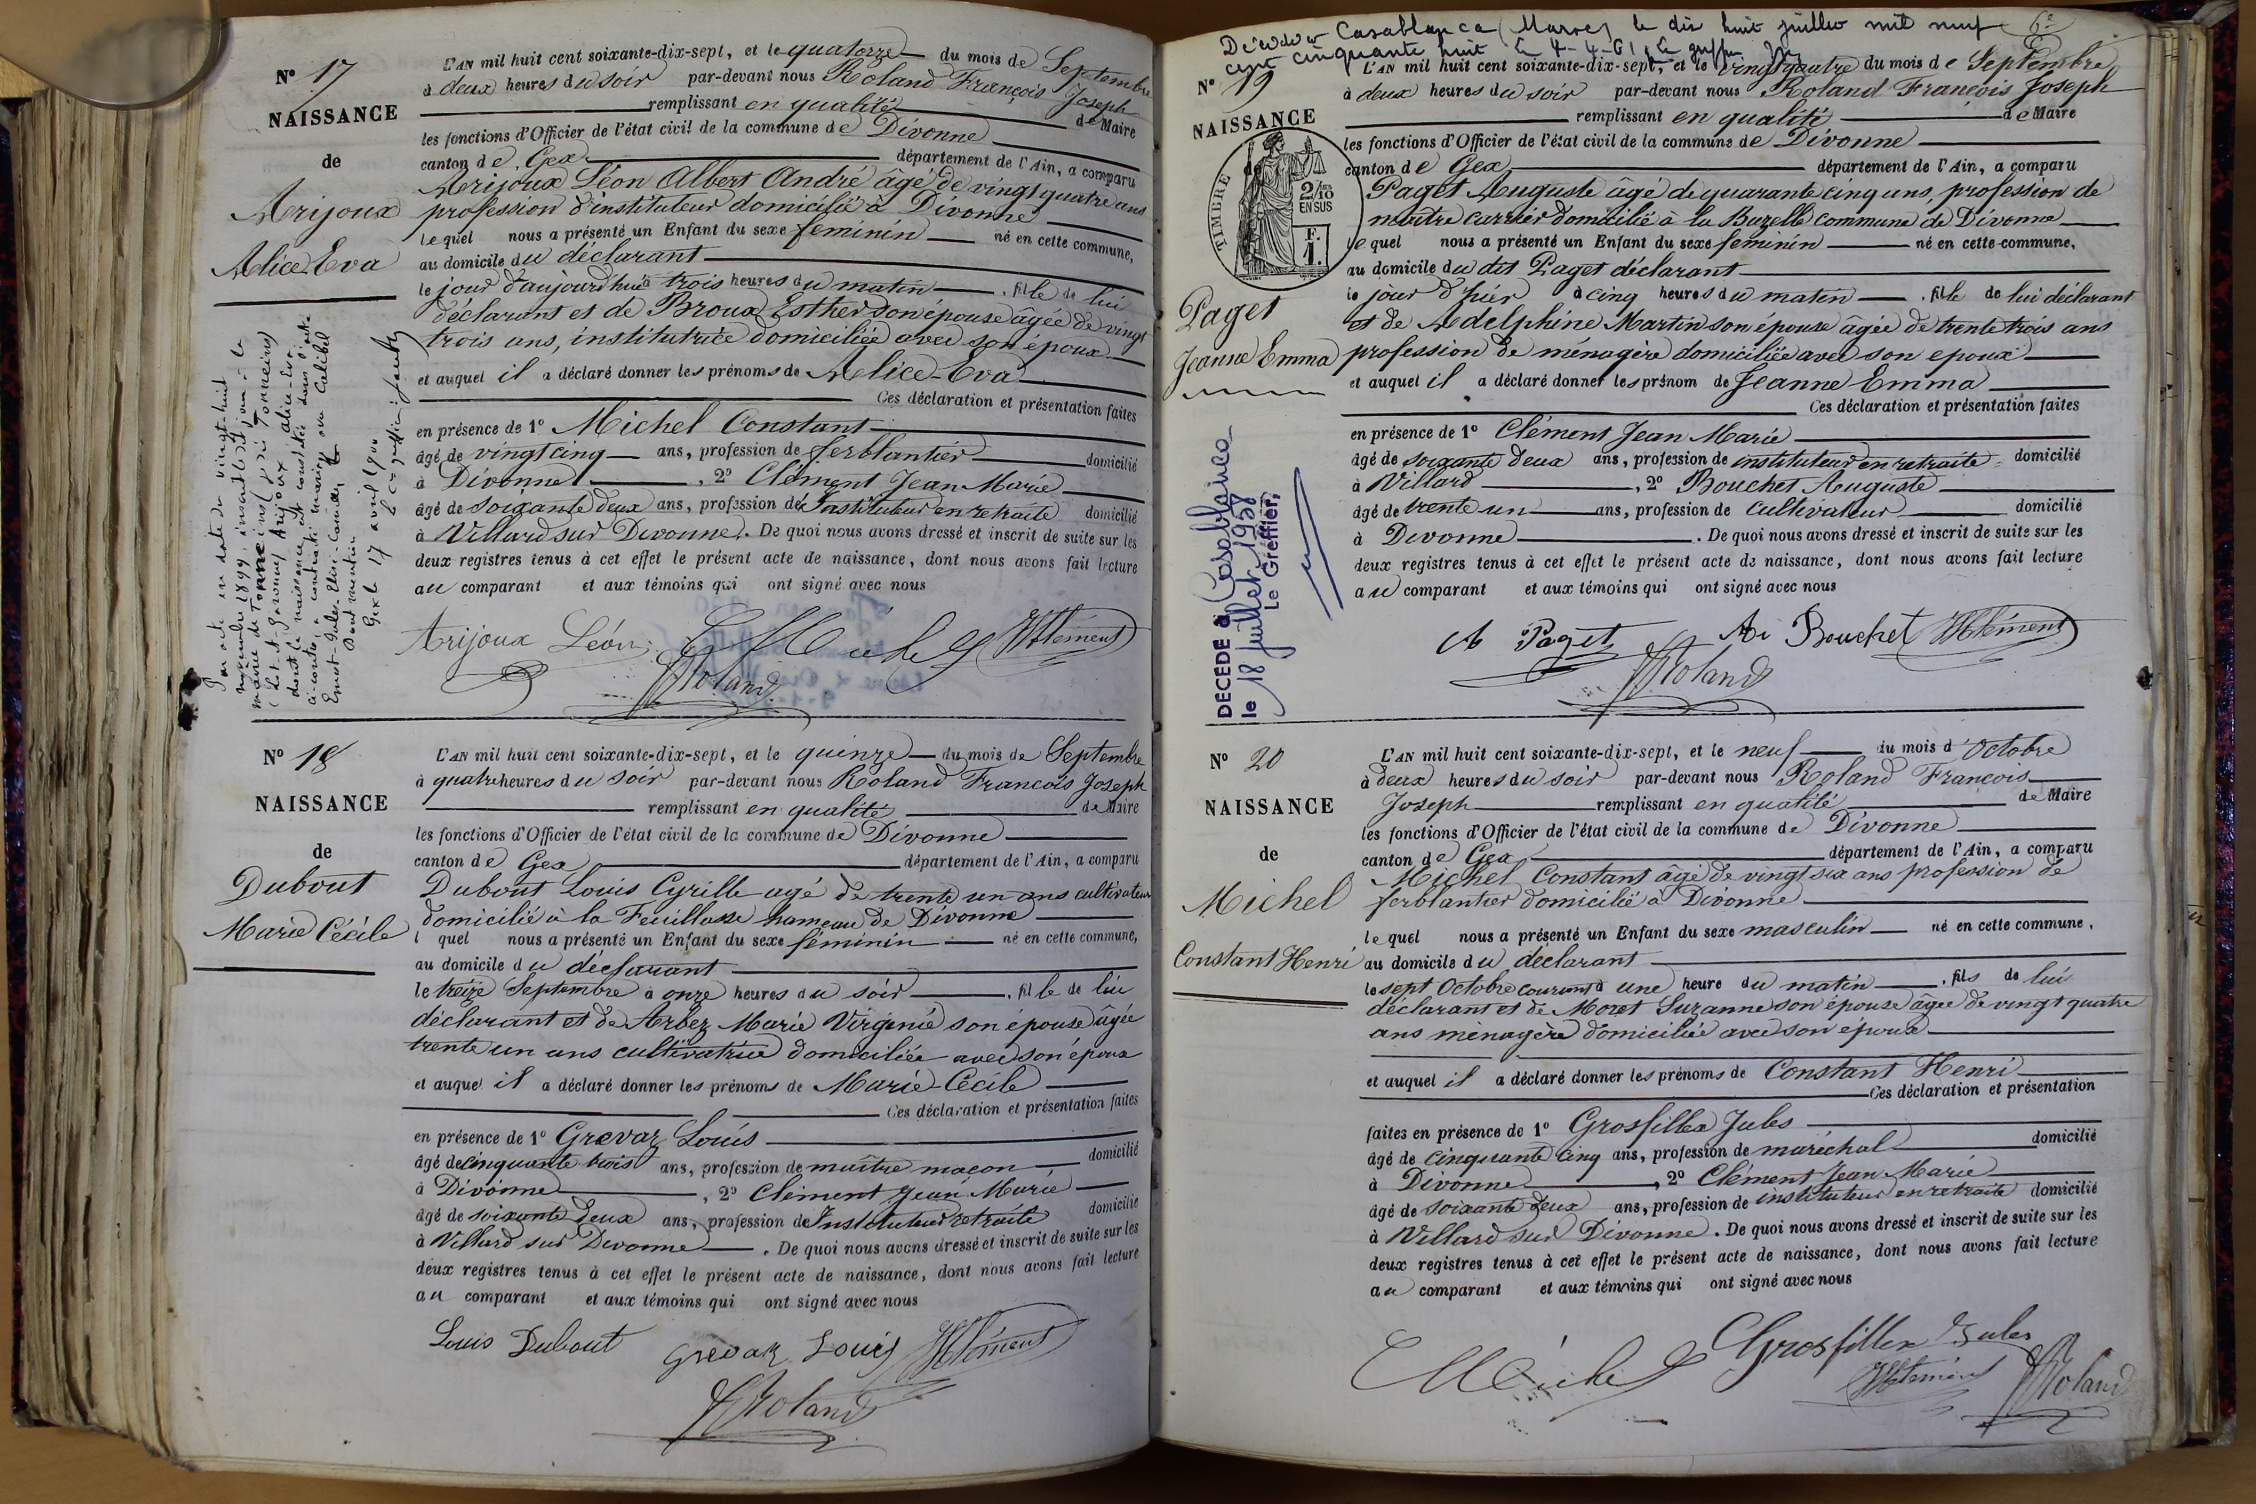 N° 17
NAISSANCE
de
Arijoux
Alice-Eva
L'AN mil huit cent soixante-dix-sept, et le quatorze du mois de Septembre
à deux heures du soir par-devant nous Roland François Joseph
remplissant en qualité de Maire
les fonctions d'Officier de l'état civil de la commune de Divonne
canton de Gex département de l'Ain, a comparu
Arijoux Léon Albert André âgé de vingt quatre ans
profession d'instituteur domicilié à Divonne
lequel nous a présenté un Enfant du sexe féminin né en cette commune,
au domicile du déclarant
le jour d'aujourd'hui à trois heures du matin, fille de lui
déclarant et de Broux Esther son épouse âgée de vingt
trois ans, institutrice domiciliée avec son époux
et auquel il a déclaré donner les prénoms de Alice-Eva
Ces déclaration et présentation faites
en présence de 1° Michel Constant
âgé de vingt cinq ans, profession de ferblantier domicilié
à Divonne, 2° Clément Jean Marie
âgé de soixante deux ans, profession de Instituteur en retraite domicilié
à Villard sur Divonne. De quoi nous avons dressé et inscrit de suite sur les
deux registres tenus à cet effet le présent acte de naissance, dont nous avons fait lecture
au comparant et aux témoins qui ont signé avec nous
Arijoux Léon C Michel JMClément
Roland
Par acte en date du vingt-huit
novembre 1899, inscrit
mairie de Tonneins
(Lot-et-Garonne) Arijoux Alice-Eva
dont la naissance est constatée dans l'acte
ci-contre, a contracté mariage avec
Dont mention
Gex le 17 avril 1900
Le greffier
N° 18
NAISSANCE
de
Dubout
Marie Cécile
L'AN mil huit cent soixante-dix-sept, et le quinze du mois de Septembre
à quatre heures du soir par-devant nous Roland Francois Joseph
remplissant en qualité de Maire
les fonctions d'Officier de l'état civil de la commune de Divonne
canton de Gex département de l'Ain, a comparu
Dubout Louis Cyrille agé de trente un ans cultivateur
domicilié à la Feuillasse hameau de Divonne
l quel nous a présenté un Enfant du sexe féminin né en cette commune,
au domicile du déclarant
le treize Septembre à onze heures du soir, fille de lui
déclarant et de Arbez Marie Virginie son épouse âgée
trente un ans cultivatrice domiciliée avec son époux
et auquel il a déclaré donner les prénoms de Marie-Cécile
Ces déclaration et présentation faites
en présence de 1° Grevaz Louis
âgé de cinquante trois ans, profession de maître maçon domicilié
à Divonne, 2° Clément Jean Marie
âgé de soixante deux ans, profession de Instituteur retraité domicilié
à Villard sur Divonne. De quoi nous avons dressé et inscrit de suite sur les
deux registres tenus à cet effet le présent acte de naissance, dont nous avons fait lecture
au comparant et aux témoins qui ont signé avec nous
Louis Dubout Grevaz Louis JMClément
Roland
Casablanca (Maroc) le dix huit juillet mil neuf
cent cinquante huit le 4-4-61, le greffier
N° 19
NAISSANCE
de
TIMBRE
2/10 EN SUS
F. 1.
Paget
Jeanne Emma
L'AN mil huit cent soixante-dix-sept, et le vingt quatre du mois de Septembre
à deux heures du soir par-devant nous Roland François Joseph
remplissant en qualité de Maire
les fonctions d'Officier de l'état civil de la commune de Divonne
canton de Gex département de l'Ain, a comparu
Paget Auguste âgé de quarante cinq ans, profession de
maître carrier domicilié à la Buzelle commune de Divonne
le quel nous a présenté un Enfant du sexe féminin né en cette commune,
au domicile du dit Paget déclarant
le jour d'hier à cinq heures du matin, fille de lui déclarant
et de Adelphine Martin son épouse âgée de trente trois ans
profession de ménagère domiciliée avec son epoux
et auquel il a déclaré donner les prénom de Jeanne Emma
Ces déclaration et présentation faites
en présence de 1° Clément Jean Marie
âgé de soixante deux ans, profession de instituteur en retraite domicilié
à Villard, 2° Bouchet Auguste
âgé de trente un ans, profession de cultivateur domicilié
à Divonne. De quoi nous avons dressé et inscrit de suite sur les
deux registres tenus à cet effet le présent acte de naissance, dont nous avons fait lecture
au comparant et aux témoins qui ont signé avec nous
A Paget Bouchet JMClément
Roland
DECEDE à Casablanca
le 18 juillet 1958
Le Greffier,
N° 20
NAISSANCE
de
Michel
Constant Henri
L'AN mil huit cent soixante-dix-sept, et le neuf du mois d'Octobre
à deux heures du soir par-devant nous Roland François
Joseph remplissant en qualité de Maire
les fonctions d'Officier de l'état civil de la commune de Divonne
canton de Gex département de l'Ain, a comparu
Michel Constant âgé de vingt six ans profession de
ferblantier domicilié à Divonne
lequel nous a présenté un Enfant du sexe masculin né en cette commune,
au domicile du déclarant
le sept Octobre courant à une heure du matin, fils de lui
déclarant et de Moret Suzanne son épouse âgée de vingt quatre
ans ménagère domiciliée avec son époux
et auquel il a déclaré donner les prénoms de Constant Henri
Ces déclaration et présentation
faites en présence de 1° Grosfillex Jules
âgé de cinquante cinq ans, profession de maréchal domicilié
à Divonne, 2° Clément Jean Marie
âgé de soixante deux ans, profession de instituteur en retraite domicilié
à Villard sur Divonne. De quoi nous avons dressé et inscrit de suite sur les
deux registres tenus à cet effet le présent acte de naissance, dont nous avons fait lecture
au comparant et aux témoins qui ont signé avec nous
C Michel Grosfillex Jules
JMClément Roland